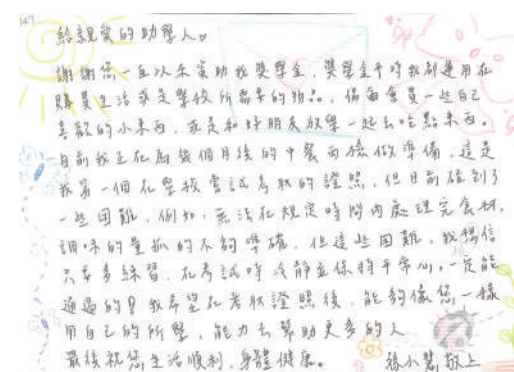 147
給親愛的助學人。
謝謝您一直以來資助我獎學金，獎學金平時我都運用在
購買生活或是學校所需要的物品，偶爾會買一些自己
喜歡的小東西，或是和好朋友放學一起去吃點東西。
目前我正在為幾個月後的中餐丙檢做準備，這是
我第一個在學校嘗試考取的證照，但目前碰到了
一些困難，例如，無法在規定時間內處理完食材，
調味的量抓的不夠準確，但這些困難，我相信
只要多練習，在考試時冷靜並保持平常心，一定能
通過的！我希望在考取證照後，能夠像您一樣
用自己的所學，能力去幫助更多的人
最後祝您生活順利，身體健康。 張小慧敬上